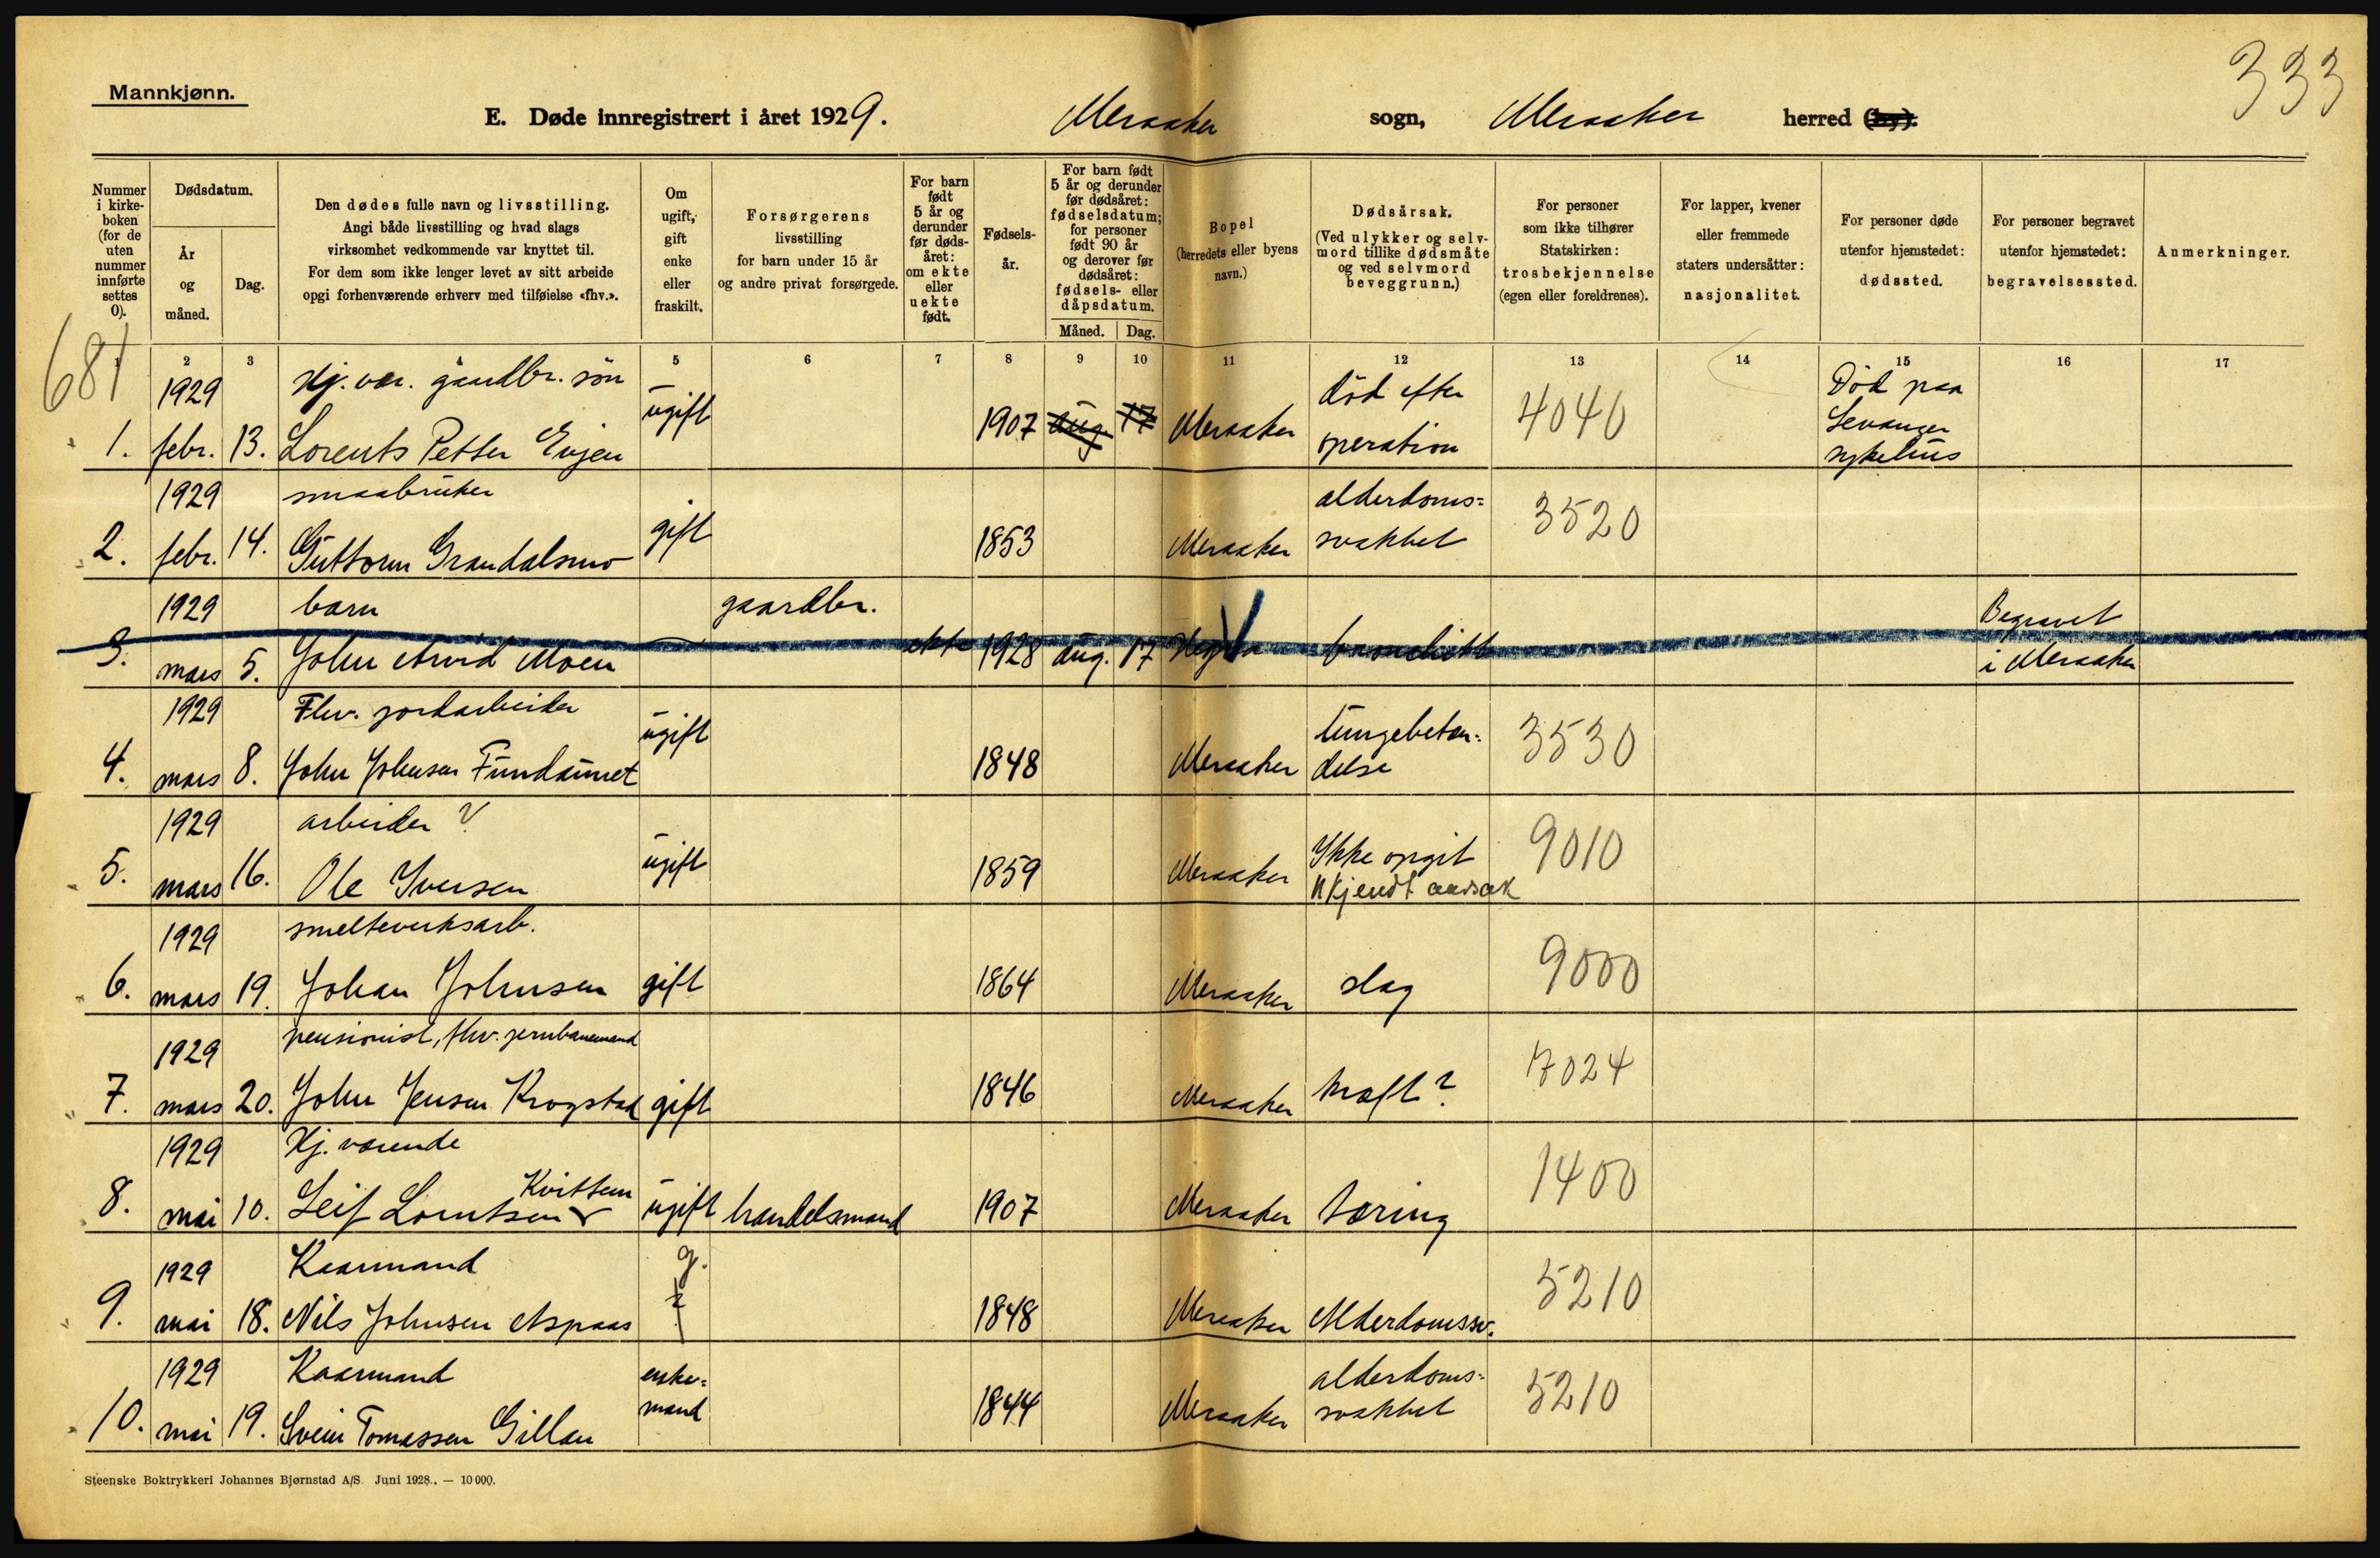 333
Mannkjønn.
E. Døde innregistrert i året 1929. Meraaker sogn, Meraaker herred (by).
Nummer i kirkeboken (for de uten nummer innførte settes 0).
Dødsdatum.
År og måned.
Dag.
Den dødes fulle navn og livsstilling.
Angi både livsstilling og hvad slags
virksomhet vedkommende var knyttet til.
For dem som ikke lenger levet av sitt arbeide
opgi forhenværende erhverv med tilføielse «fhv.».
Om ugift, gift enke eller fraskilt.
Forsørgerens
livsstilling
for barn under 15 år
og andre privat forsørgede.
For barn født 5 år og derunder før dødsåret: om ekte eller uekte født.
Fødselsår.
For barn født 5 år og derunder før dødsåret: fødselsdatum; for personer født 90 år og derover før dødsåret: fødsels- eller dåpsdatum.
Måned. Dag.
Bopel
(herredets eller byens navn.)
Dødsårsak.
(Ved ulykker og selvmord tillike dødsmåte og ved selvmord beveggrunn.)
For personer
som ikke tilhører
Statskirken:
trosbekjennelse
(egen eller foreldrenes).
For lapper, kvener
eller fremmede
staters undersåtter:
nasjonalitet.
For personer døde
utenfor hjemstedet:
dødssted.
For personer begravet
utenfor hjemstedet:
begravelsessted.
Anmerkninger.
1 2 3 4 5 6 7 8 9 10 11 12 13 14 15 16 17
681
1929 Hj. vær. gaardbr. søn ugift død efter 4040 Død paa
1. febr. 13. Lorents Petter Evjen 1907 aug. 17 Meraaker operation Levanger
sykehus
1929 smaabruker alderdoms= 3520
2. febr. 14. Guttorm Grandalsmo gift 1853 Meraaker svakhet
1929 barn gaardbr. Begravet
3. mars 5. John Arvid Moen ekte 1928 aug. 17 Hegra bronchitt i Meraaker
1929 Fhv. jordarbeider ugift lungebetæn= 3530
4. mars 8. John Johnsen Fundaunet 1848 Meraaker delse
1929 arbeider ? ugift Ikke opgit 9010
5. mars 16. Ole Iversen 1859 Meraaker Ukjendt aarsak
1929 smelteverksarb. 9000
6. mars 19. Johan Johnsen gift 1864 Meraaker slag
1929 pensionist, fhv. jernbanemand 17024
7. mars 20. John Jensen Krogstad gift 1846 Meraaker kræft?
1929 Hj. værende 1400
Kvittem
8. mai 10. Leif Lorntsen ugift handelsmand 1907 Meraaker tæring
1929 Kaarmand g. 5210
9. mai 18. Nils Johnsen Aspaas ? 1848 Meraaker Alderdomssv.
1929 Kaarmand enke= alderdoms= 5210
10. mai 19. Svein Tomassen Gillan mand 1844 Meraaker svakhet
Steenske Boktrykkeri Johannes Bjørnstad A/S. Juni 1928.. — 10 000.